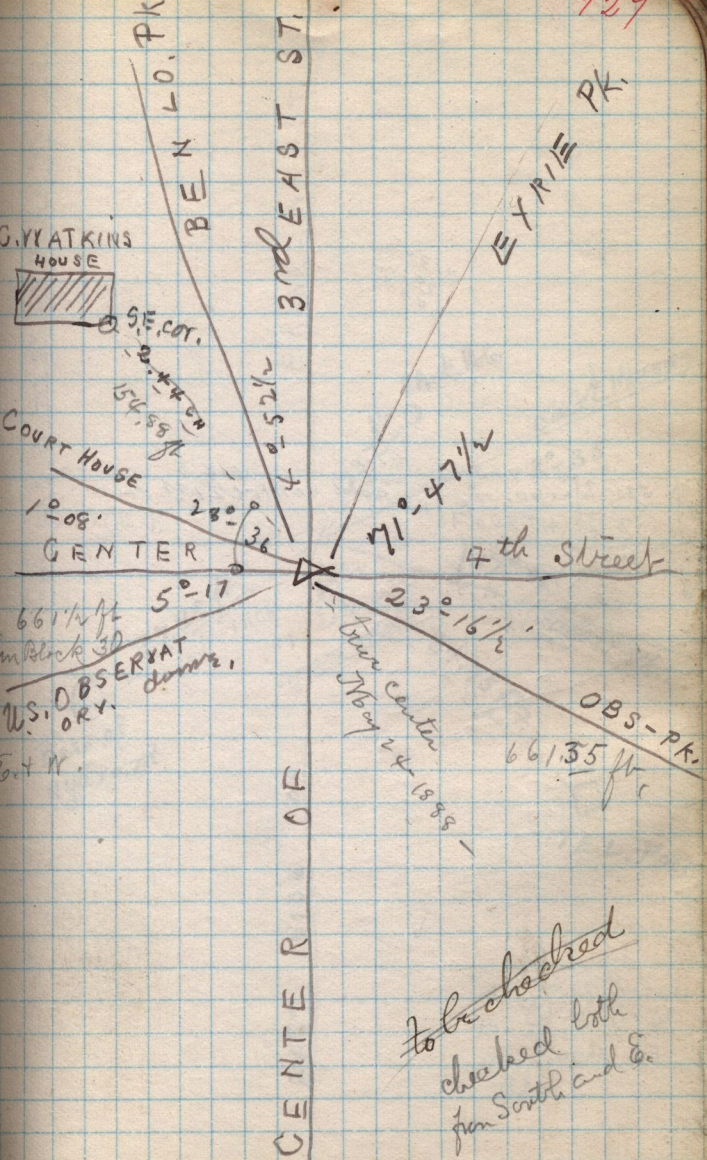 BEN LO. PK
3rd EAST ST.
PK.
C. WATKINS
HOUSE
S.E. cor.
154.88 ft
COURT HOUSE
1°-08'
28°-36
4°-52½
71°-47½
CENTER
7th Street
5°-17
23°-16½'
661½ ft
in Block 30
U.S. OBSERVATORY.
dome.
E. + N.
true center
May 24-1888-
OBS-PK.
661.55 ft,
CENTER OF
to be checked
checked both
from South and E.